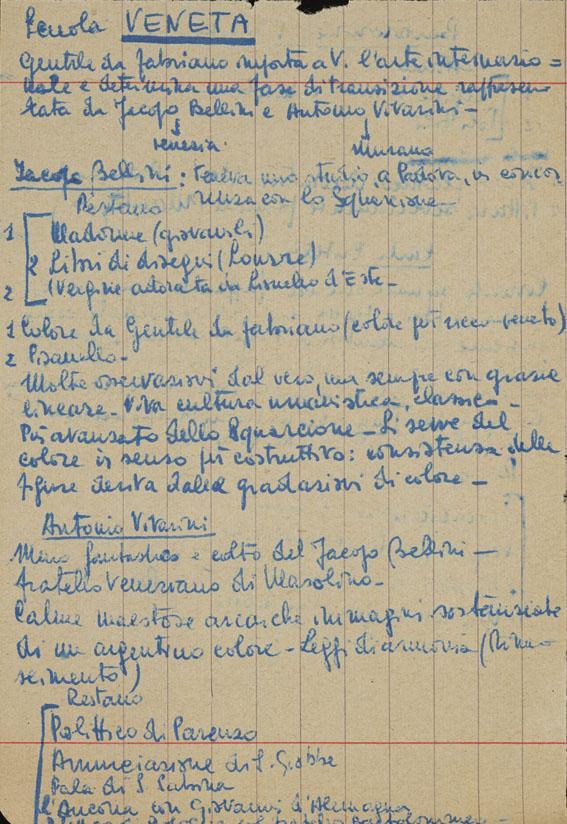 Scuola VENETA
Gentile da Fabriano riporta a V. l'arte internazio=
nale e determina una fase di transizione rappresen
tata da Jacopo Bellini e Antonio Vivarini -
Venezia Murano
Jacopo Bellini: teneva uno studio, a Padova, in concor
renza con lo Squarcione -
Restano
1 Madonne (giovanili)
2 Libri di disegni (Louvre)
2 (Vergine adorata da Lionello d'Este -
1 Colore da Gentile da Fabriano (colore più ricco-veneto)
2 Pisanello -
Molte osservazioni dal vero, ma sempre con grazie
lineare - Viva cultura umanistica, classica -
Più avanzato dello Squarcione - Si serve del
colore in senso più costruttivo: consistenza delle
figure deriva dalle gradazioni di colore -
Antonio Vivarini
Meno fantastico e colto del Jacopo Bellini -
fratello Veneziano di Masolino -
Calme maestose arcaiche immagini sostanziate
di un argentino colore - Leggi di armonia (Rina
scimento)
Restano
Polittico di Parenzo
Annunciazione di S. Giobbe
Pala di S. Sabina
l'Ancona con Giovanni d'Alemagna
Bartolommeo -